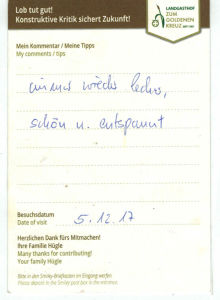 Lob tut gut!
Konstruktive Kritik sichert Zukunft!
LANDGASTHOF
ZUM
GOLDENEN
KREUZ
Mein Kommentar / Meine Tipps
My comments / tips
immer wieder lecker,
schön u. entspannt
Besuchsdatum
Date of visit
5.12.17
Herzlichen Dank fürs Mitmachen!
Ihre Familie Hügle
Many thanks for contributing!
Your family Hügle
Bitte in den Smiley-Briefkasten im Eingang werfen
Please deposit in the Smiley post box in the entrance.